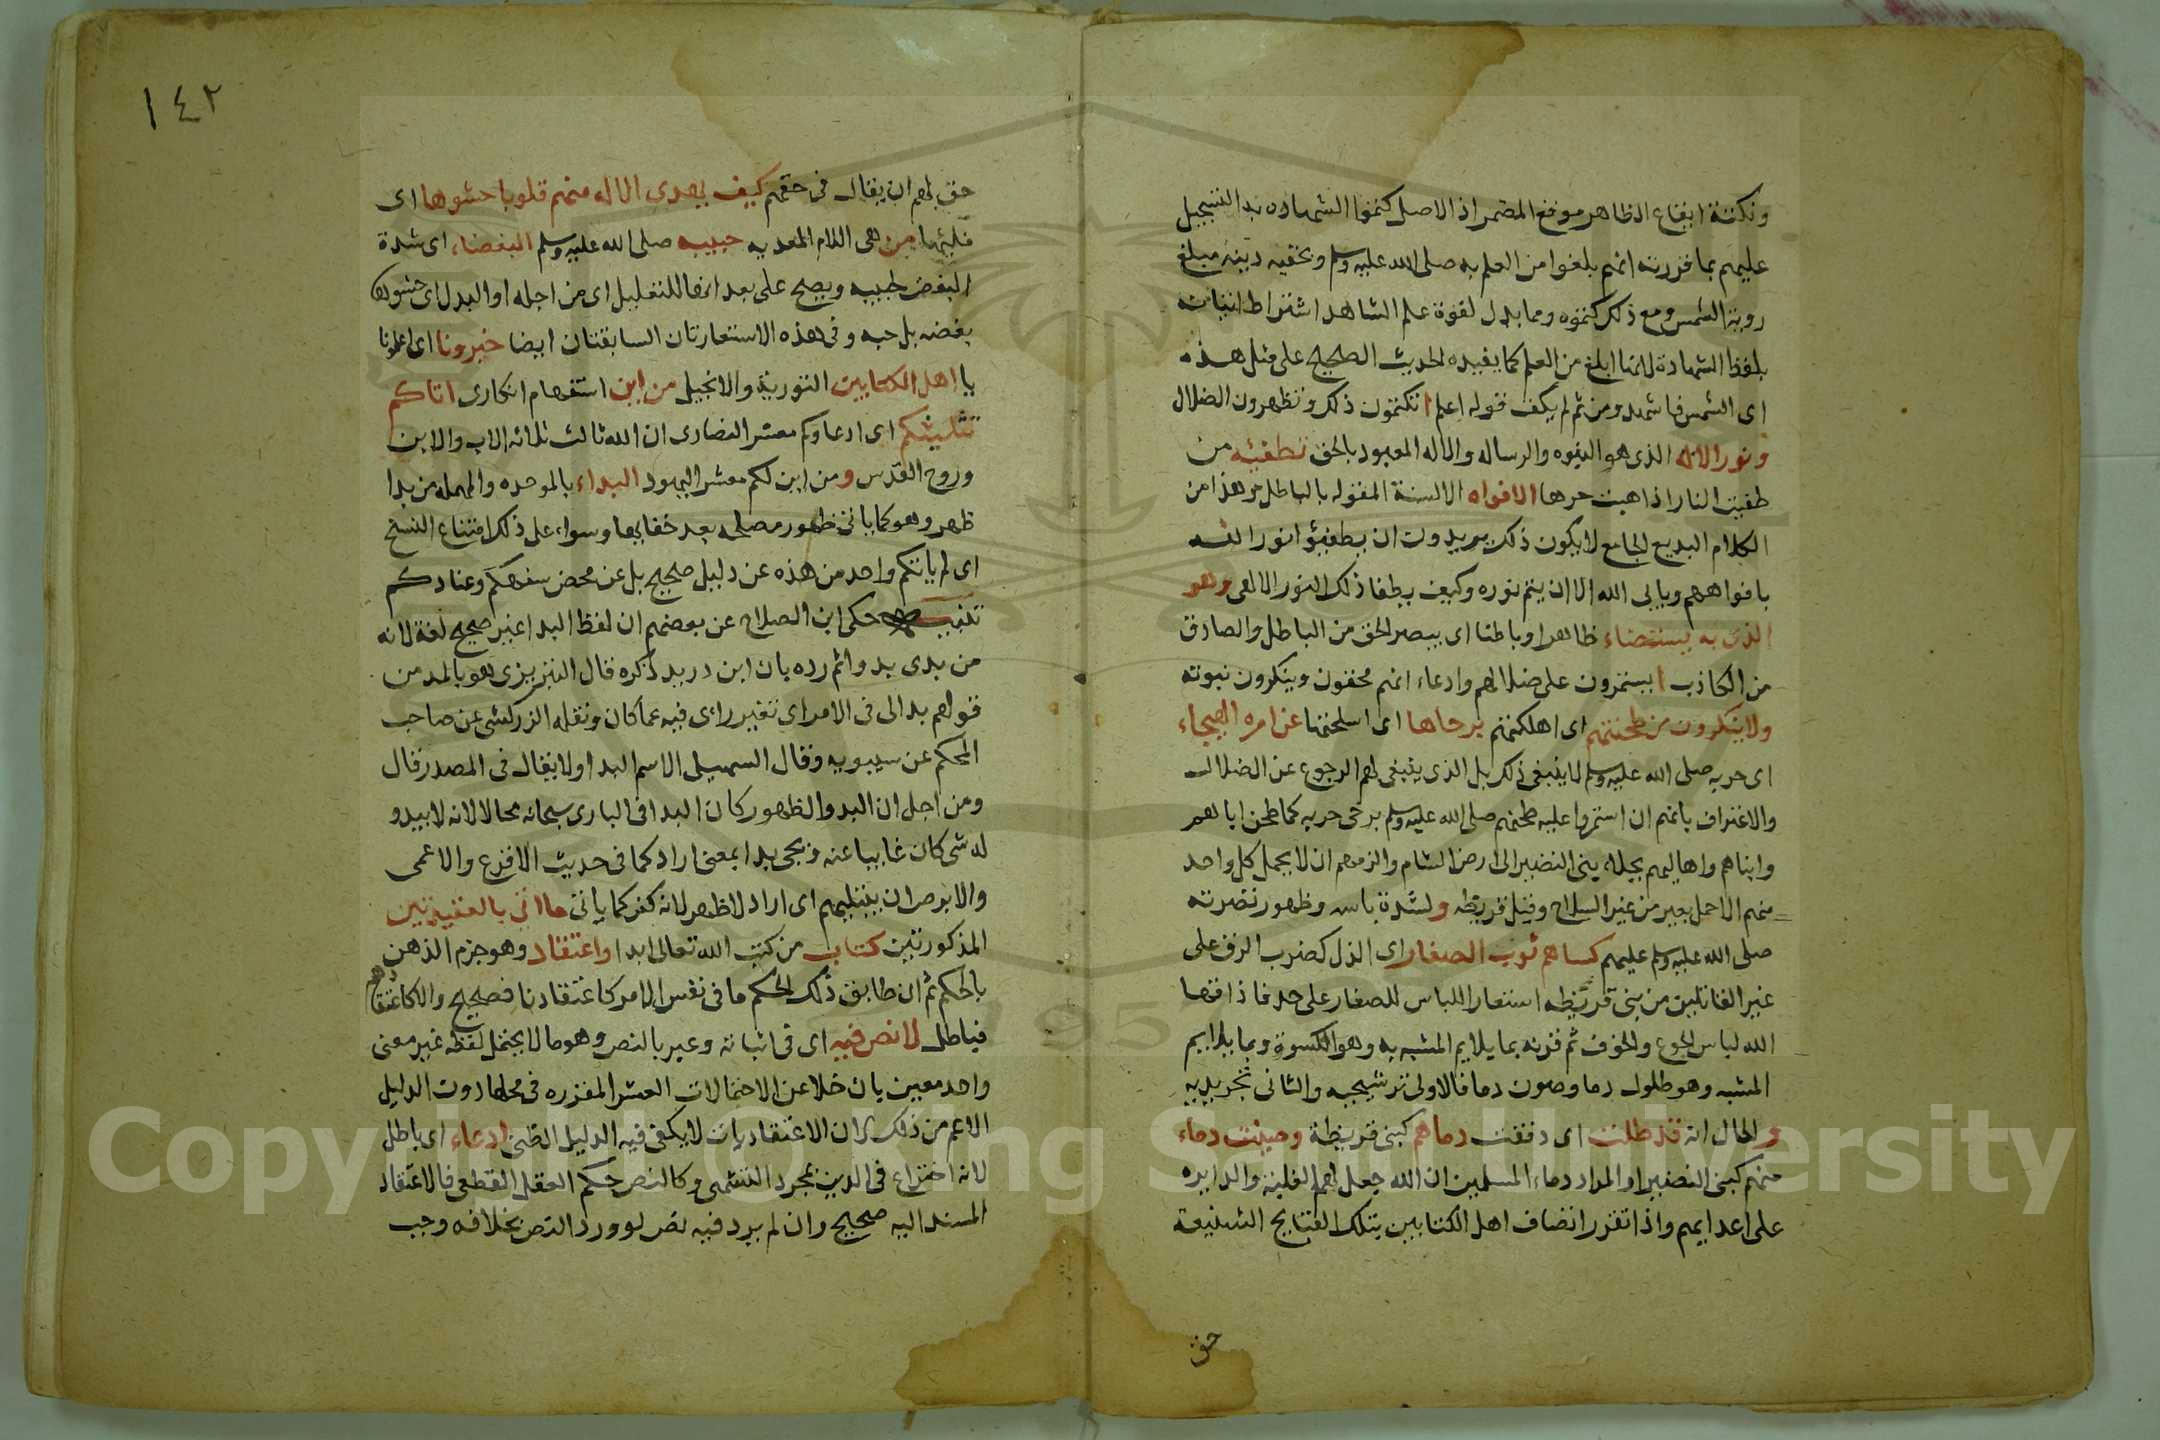 ونكتة ايقاع الظاهر موقع المضمر اذ الاصل كتموا الشهاده به التسجيل
عليهم بما قررته انهم بلغوا من العلم به صلى الله عليه وسلم وبحقيه دينه مبلغ
روية الشمس ومع ذلك كتموه ومما يدل لقوة علم الشاهد اشتراط اتيانه
بلفظ الشهادة لانها ابلغ من العلم كما يفيده الحديث الصحيح على مثل هذه
اى الشمس فاشهد ومن ثم لم يكف قوله اعلم اتكتمون ذلك وتظهرون الضلال
ونور الاله الذى هو النبوه والرساله والاله المعبود بالحق تطفئه من
طفيت النار اذا هبت حرها الافواه الالسنة المقوله بالباطل وهذا من
الكلام البديع الجامع لا يكون ذلك يريدون ان يطفئوا نور الله
بافواههم ويابى الله الا ان يتم نوره وكيف يطفا ذلك النور الالهى وهو
الذى به يستضاء ظاهرا وباطنا اى يبصر الحق من الباطل والصادق
من الكاذب ايستمرون على ضلالهم وادعاء انهم محقون وينكرون نبوته
ولا ينكرون من طحنتهم اى اهلكتهم برحاها اى اسلحتها عن امره الهيجاء
اى حربه صلى الله عليه وسلم لا ينبغى ذلك بل الذى ينبغى لهم الرجوع عن الضلال
والاعتراف بانهم ان استمروا عليه طحنهم صلى الله عليه وسلم برحى حربه كما طحن اباهم
وابناهم واهاليهم بجلاء بنى النضير الى ارض الشام والزمهم ان لا يحمل كل واحد
منهم الا حمل بعير من غير السلاح وقيل قريظه ولشدة باسه وظهور نصرته
صلى الله عليه وسلم عليهم كساهم ثوب الصغار اى الذل كضرب الرق على
غير القاتلين من بنى قريظه استعار اللباس للصغار على حد فاذاقها
الله لباس الجوع والخوف ثم قرنه بما يلايم المشبه به وهو الكسوة وبما يلايم
المشبه وهو طلول دما وصون دما فالاولى ترشيحيه والثانى تجريديه
والحال انه قد طلت اى دفقت دماهم كبنى قريظة وصينت دماء
منهم كبنى النضير او المراد دماء المسلمين ان الله جعل لهم الغلبة والدايره
على اعدايهم واذا تقرر اتصاف اهل الكتابين بتلك القبايح الشنيعة
حق
١٤٢
حق لهم ان يقال فى حقهم كيف يهدى الاله منهم قلوبا حشوها اى
قلبها من هى اللام المعديه حبيبه صلى الله عليه وسلم البغضاء اى شدة
البغض لحبيبه ويصح على بعد انها للتعليل اى من اجله او البدل اى حشوها
بغضه بل حبه وفى هذه الاستعارتان السابقتان ايضا خبرونا اى اعلمونا
يا اهل الكتابين التورية والانجيل من اين استفهام انكارى اتاكم
تثليثكم اى ادعاوكم معشر النصارى ان الله ثالث ثلاثه الاب والابن
وروح القدس ومن اين لكم معشر اليهود البداء بالموحده والمهمله من بدا
ظهر وهو كما ياتى ظهور مصلحه بعد خفايها وسواء على ذلك امتناع النسخ
اى لم ياتكم واحد من هذه عن دليل صحيح بل عن محض سفهكم وعنادكم
تنبيه حكى ابن الصلاح عن بعضهم ان لفظ البدا غير صحيح لغة لانه
من بدى يدو اثم رده بان ابن دريد ذكره قال التبريزى هو بالمد من
قولهم بدا لى فى الامر اى تغير راى فيه عما كان ونقله الزركشى عن صاحب
المحكم عن سيبويه وقال السهيلى الاسم البدا ولا يقال فى المصدر قال
ومن اجل ان البدو الظهور كان البدا فى البارى سبحانه محالا لانه لا يبدو
له شى كان غايبا عنه ويجى بدا بمعنى اراد كما فى حديث الاقرع والاعمى
والابرص ان يبتليهم اى اراد لا ظهر لانه كفر كما ياتى ما اتى بالعقيدتين
المذكورتين كتاب من كتب الله تعالى ابدا واعتقاد وهو جزم الذهن
بالحكم ثم ان طابق ذلك الحكم ما فى نفس الامر كاعتقادنا فصحيح والا كاعتقادهم
فباطل لا نص فيه اى فى اثباته وعبر بالنص وهو ما لا يحتمل لفظه غير معنى
واحد معين بان خلا عن الاحتمالات العشر المقرره فى محلها دون الدليل
الاعم من ذلك لان الاعتقاديات لا يكفى فيه الدليل الظنى ادعاء اى باطل
لانه اختراع فى الدين بمجرد التشهى وكالنص حكم العقل القطعى فالاعتقاد
المسند اليه صحيح وان لم يرد فيه نص لو ورد النص بخلافه وجب
Copyright © King Saud University
1957